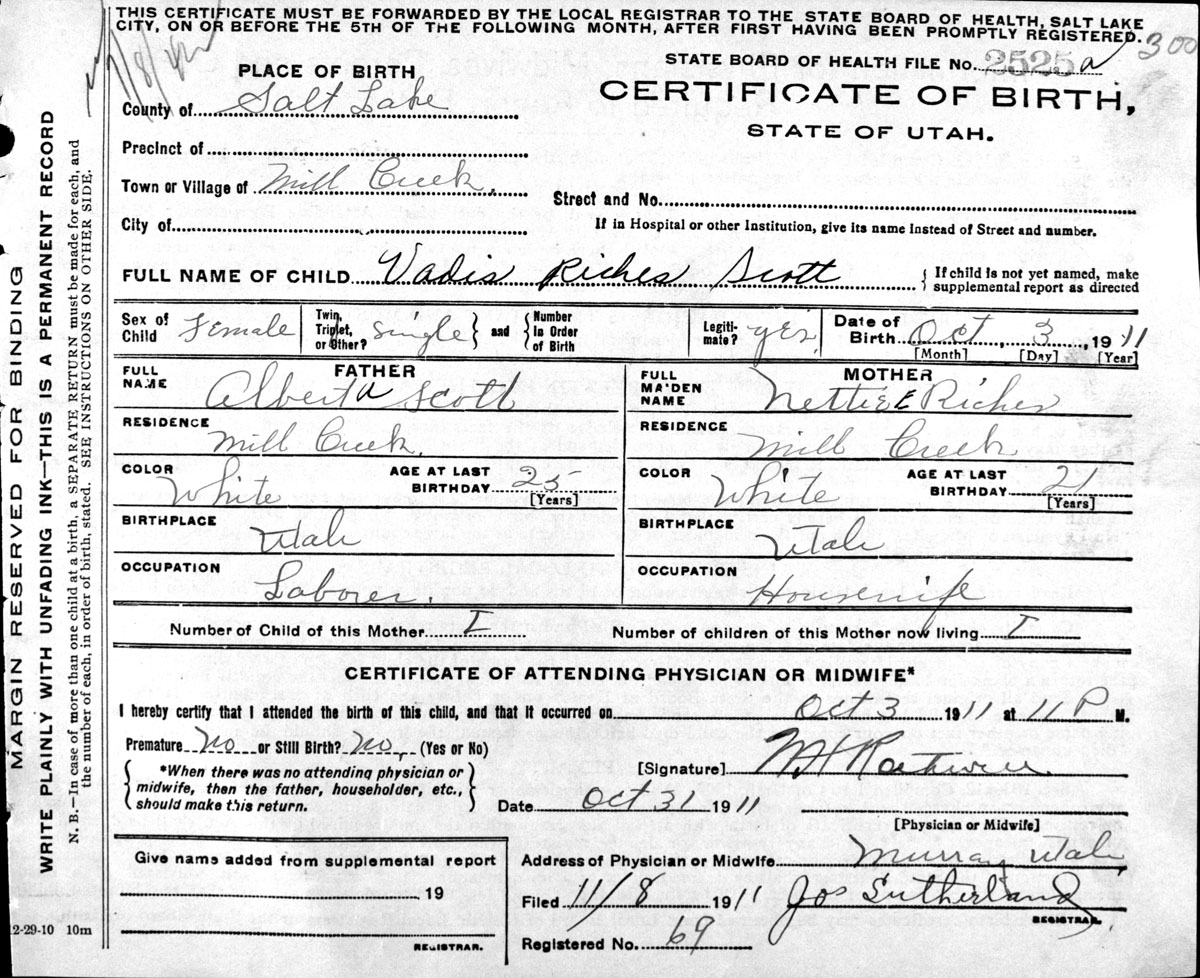 THIS CERTIFICATE MUST BE FORWARDED BY THE LOCAL REGISTRAR TO THE STATE BOARD OF HEALTH, SALT LAKE
CITY, ON OR BEFORE THE 5TH OF THE FOLLOWING MONTH, AFTER FIRST HAVING BEEN PROMPTLY REGISTERED.
300
STATE BOARD OF HEALTH FILE No. 2525 a
CERTIFICATE OF BIRTH,
STATE OF UTAH.
PLACE OF BIRTH
County of Salt Lake
Precinct of
Town or Village of Mill Creek.
Street and No.
City of
If in Hospital or other Institution, give its name Instead of Street and number.
FULL NAME OF CHILD Vadis Riches Scott
{ If child is not yet named, make
supplemental report as directed
Sex of Child Female
Twin, Triplet, or Other? Single } and { Number In Order of Birth
Legiti-mate? yes
Date of Birth Oct 3, 1911
[Month] [Day] [Year]
FATHER
FULL NAME Albert A Scott
RESIDENCE Mill Creek.
COLOR White AGE AT LAST BIRTHDAY 25 [Years]
BIRTHPLACE Utah
OCCUPATION Laborer.
MOTHER
FULL MAIDEN NAME Nettie E Riches
RESIDENCE Mill Creek
COLOR White AGE AT LAST BIRTHDAY 21 [Years]
BIRTHPLACE Utah
OCCUPATION Housewife
Number of Child of this Mother I Number of children of this Mother now living I
CERTIFICATE OF ATTENDING PHYSICIAN OR MIDWIFE*
I hereby certify that I attended the birth of this child, and that it occurred on Oct 3 1911 at 11 P M.
Premature No or Still Birth? No, (Yes or No)
{ *When there was no attending physician or
midwife, then the father, householder, etc.,
should make this return. }
[Signature]
Date Oct 31 1911
[Physician or Midwife]
Give name added from supplemental report
19
REGISTRAR.
Address of Physician or Midwife Murray Utah
Filed 11/8 1911 Jos Sutherland
REGISTRAR.
Registered No. 69
12-29-10 10m
MARGIN RESERVED FOR BINDING
WRITE PLAINLY WITH UNFADING INK—THIS IS A PERMANENT RECORD
N. B.—In case of more than one child at a birth, a SEPARATE RETURN must be made for each, and
the number of each, in order of birth, stated. SEE INSTRUCTIONS ON OTHER SIDE.